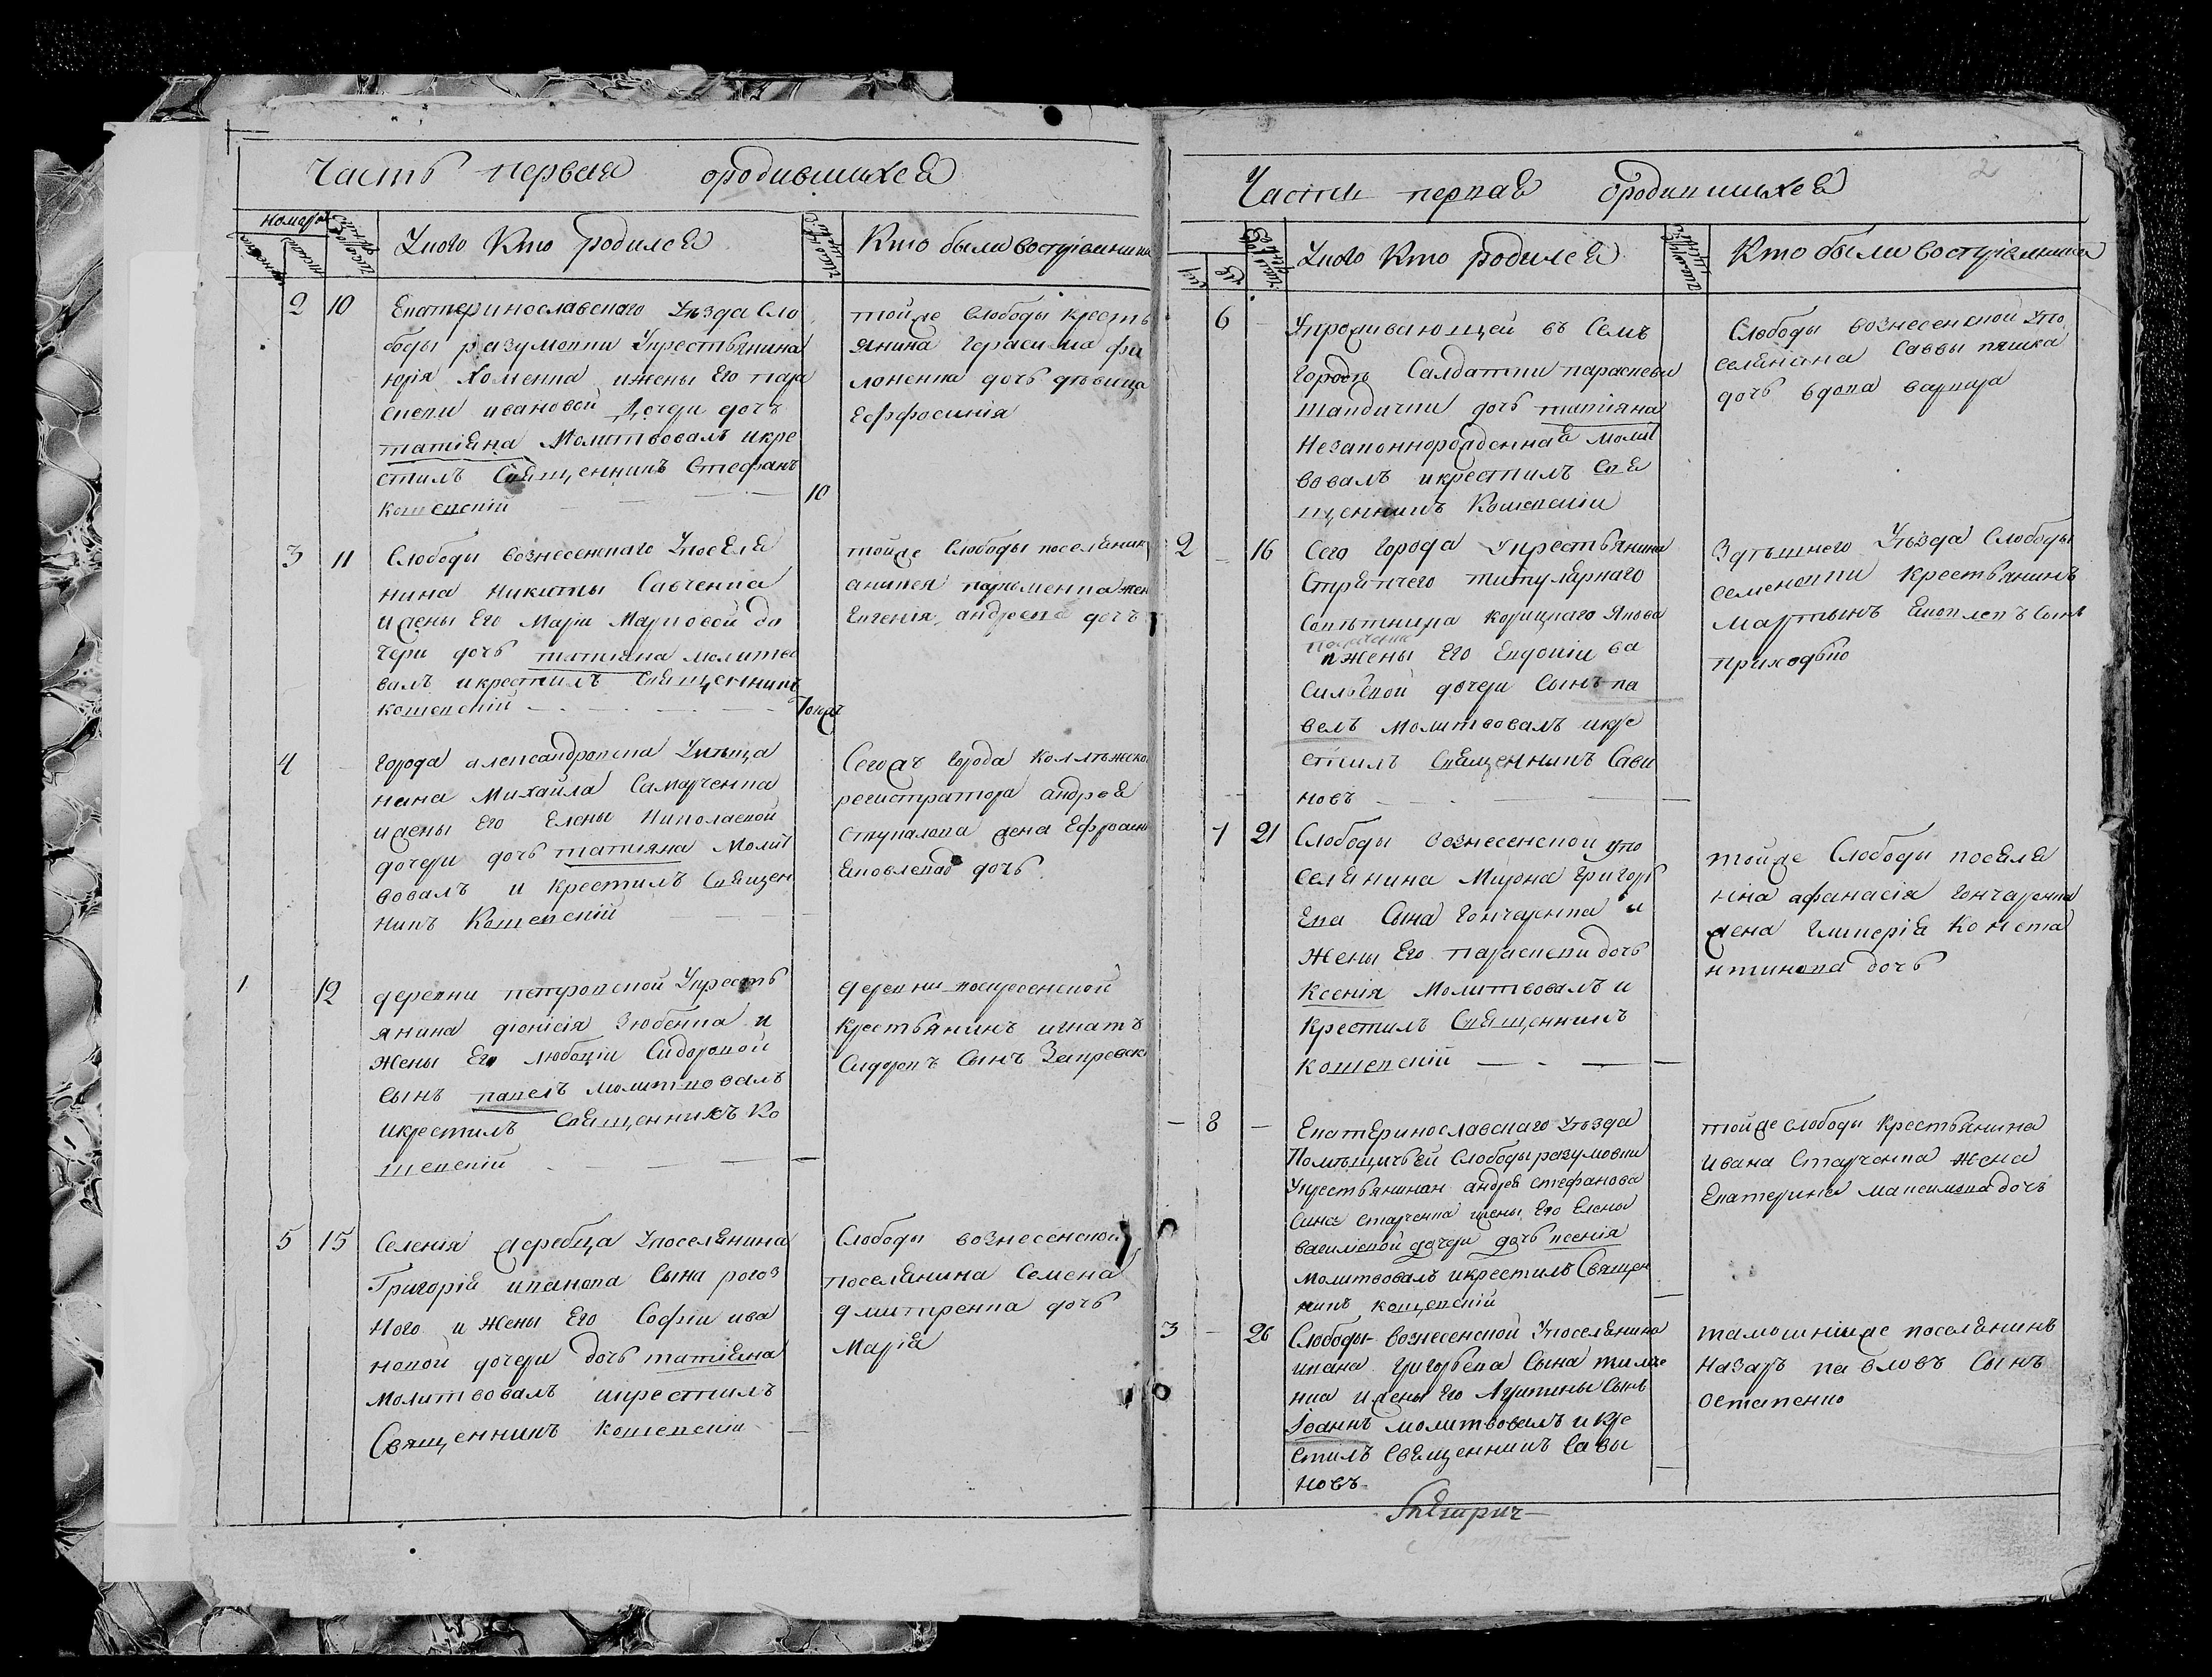 Часть первая ородившихся
номера
Укого Кто родился
Кто были восприемники
2 10 Екатеринославского Уѣзда Сло
боды разумовки Укрестьянина
юрія Хоменка ижены Его пара
скеви ивановой дочери дочь
татіяна Молитвовалъ икре
стилъ Священникъ Стефанъ
кошевскій
10
тойже Слободы кресть
янина Герасима фи
лоненка дочь дѣвица
Ефросинія
3 11 Слободы вознесенкаго Упоселя
нина Никиты Савченка
ижены Его Маріи Марковой до
чери дочь татіяна молитво
валъ икрестилъ Священникъ
кошевскій
тойже Слободы поселянин
пархоменка жен
Евгенія андреева дочь
4 города александровска Умѣща
нина Михайла Самарченка
ижены Его Елены Николаевой
дочери дочь татіяна Молит
вовалъ и крестилъ Священ
никъ Кошевскій
Сегожъ Города Коллѣжско
регистратора андрея
ступакова жена Ефросин
яковлева дочь
1 12 деревни петровской Укресть
янина діонісія Зюбенка и
жены Его любовіи Сидоровой
сынъ павелъ молитвовалъ
икрестилъ Священникъ Ко
шевскій
деревни воскресенской
Крестьянинъ игнатъ
Сидоровъ Сынъ
5 15 Селенія жеребца Упоселянина
Григорія иванова Сына рогоз
ного и жены Его Софіи ива
новой дочери дочь татіяна
молитвовалъ икрестилъ
Священникъ кошевскій
Слободы вознесенской
поселянина Семена
дмитренка дочь
Марія
2
Части первая ородившихся
Укого Кто родился
Кто были восприемника
6 Упроживающей въ Семъ
городѣ Салдатки параскеви
дочь татіяна
Незаконнорожденная молит
вовалъ икрестилъ Свя
щенникъ Кошевскій
Слободы вознесенской Упо
селянина Саввы пяшка
дочь вдова варвара
2 16 Сего города Укрестьянина
Стряпчего титулярнаго
Совѣтника Корицкаго Якова
ижены Его Евдокіи ва
сильевой дочери Сынъ па
велъ молитвовалъ икре
стилъ Священникъ Сави
новъ
Здѣшнего Уѣзда Слободы
семеновки Крестьянинъ
мартынъ Яковлевъ Сынъ
приходько
7 21 Слободы вознесенской упо
селянина Мирона Григорь
ева Сына Гончаренка и
жены Его параскеви дочь
Ксенія Молитвовалъ и
Крестилъ Священникъ
кошевскій
тойже Слободы поселя
нина афанасія Гончаренка
жена Гликерія Конста
нтинова дочь
8 Екатеринославскаго Уѣзда
Помѣщичьей Слободы разумовки
Укрестьянинан андрея стефанова
Сина старченка ижены Его Елены
василіевой дочери дочь ксенія
молитвовалъ икрестилъ Священ
никъ кошевскій
тойже слободы Крестьянина
ивана Старченка жена
Екатерина максимова дочь
3 26 Слободы вознесенской Упоселянина
ивана григорьева Сына
нка ижены Его Агрипины Сынъ
Іоаннъ молитвовалъ икре
стилъ Священникъ Сави
новъ
тамошніиже поселянинъ
назаръ павловъ Сынъ
остапенко